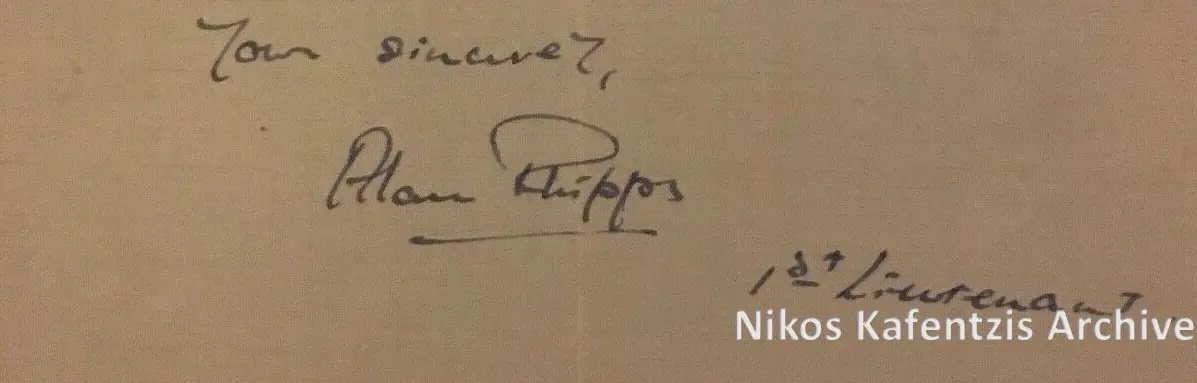 Yours sincerely,
Alan Phipps
1st Lieutenant.
Nikos Kafentzis Archive